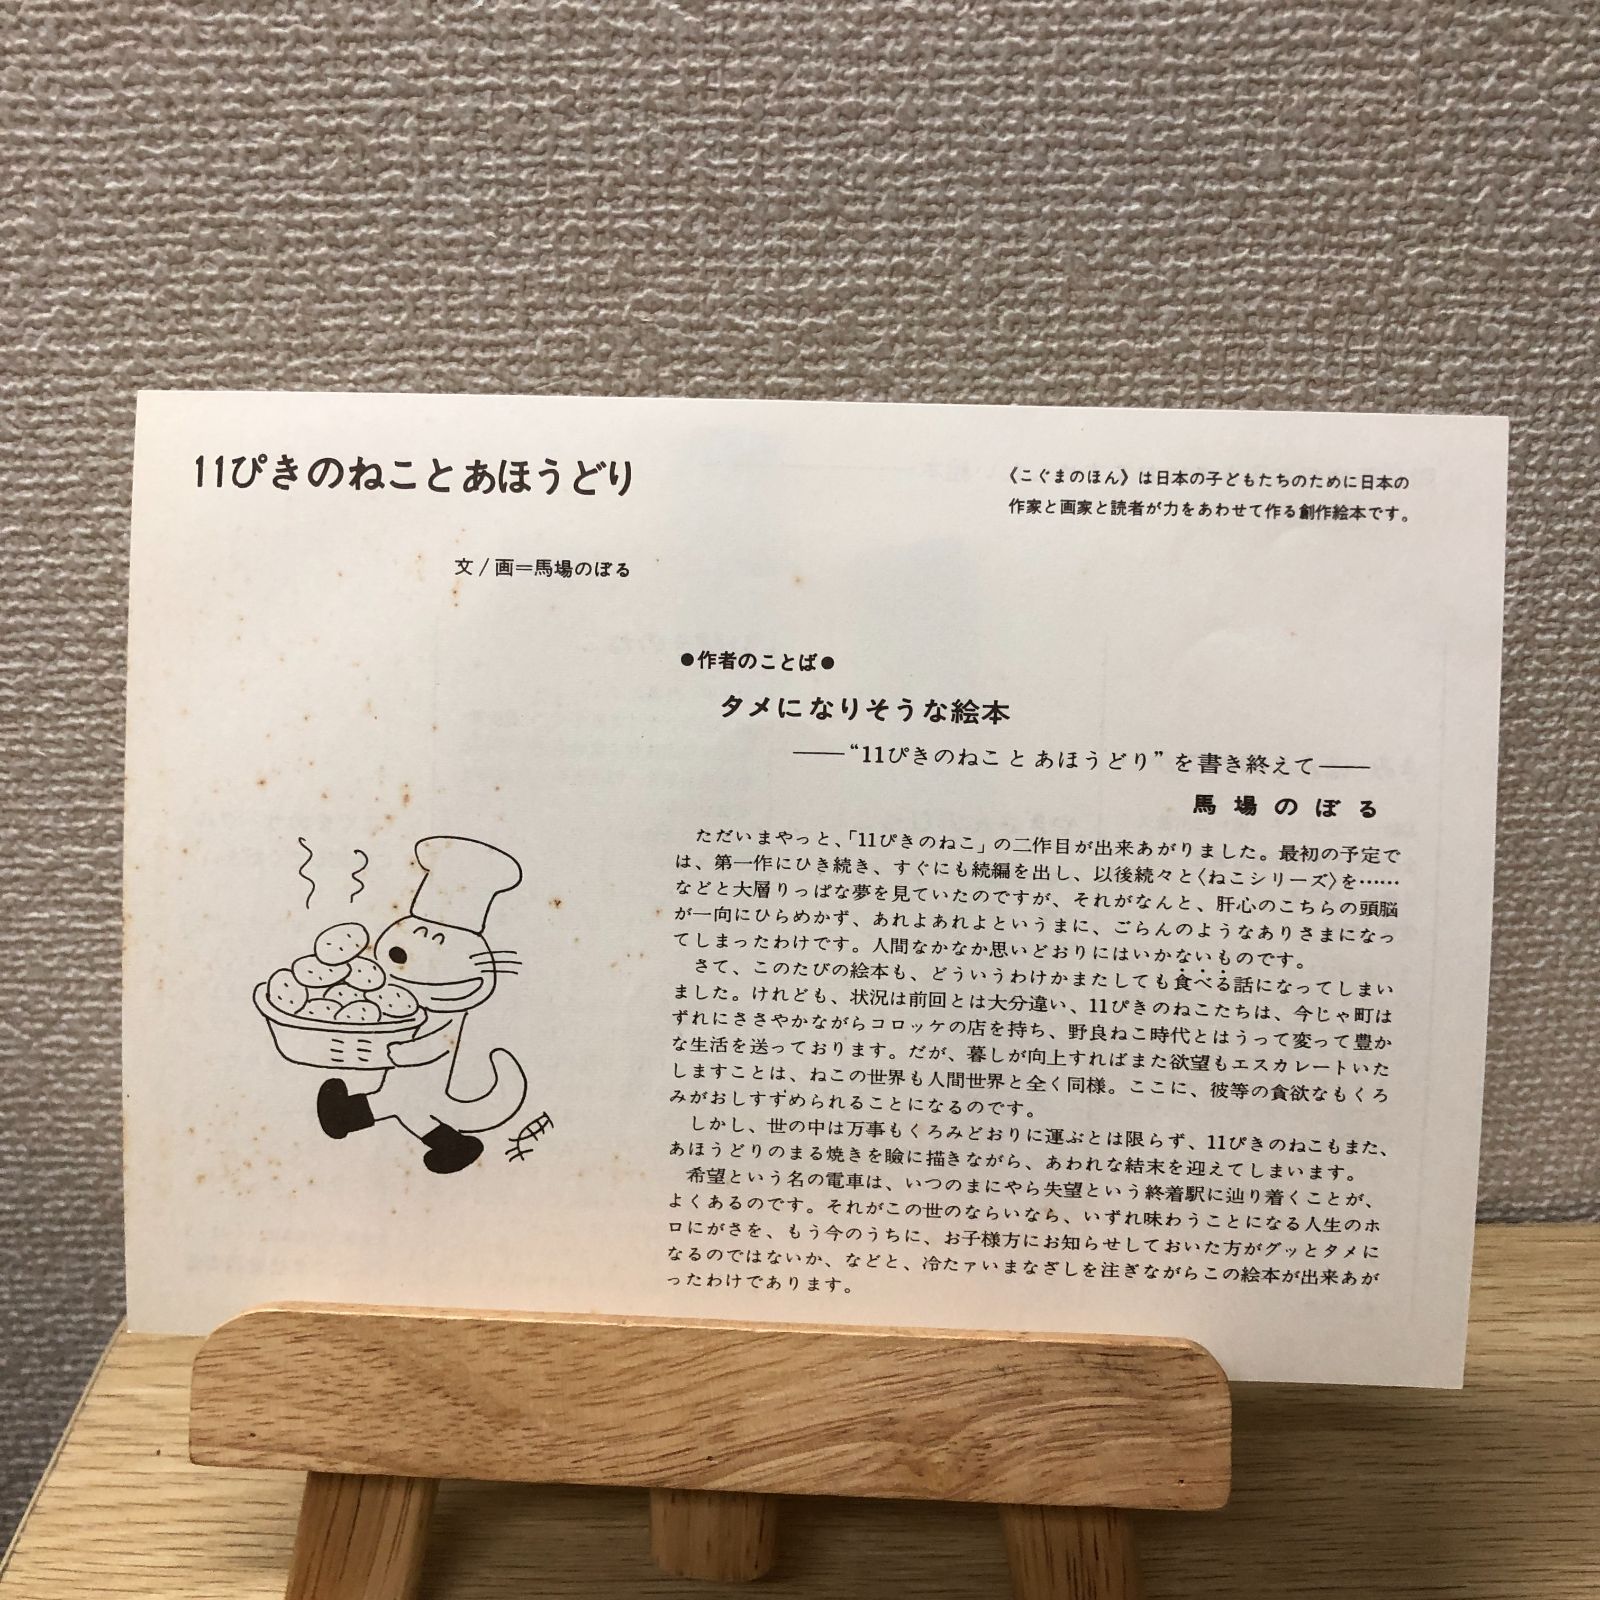 11ぴきのねことあほうどり
文/画=馬場のぼる
《こぐまのほん》は日本の子どもたちのために日本の
作家と画家と読者が力をあわせて作る創作絵本です。
●作者のことば●
タメになりそうな絵本
――“11ぴきのねこと あほうどり”を書き終えて――
馬場のぼる
ただいまやっと、「11ぴきのねこ」の二作目が出来あがりました。最初の予定で
は、第一作にひき続き、すぐにも続編を出し、以後続々と〈ねこシリーズ〉を……
などと大層りっぱな夢を見ていたのですが、それがなんと、肝心のこちらの頭脳
が一向にひらめかず、あれよあれよというまに、ごらんのようなありさまになっ
てしまったわけです。人間なかなか思いどおりにはいかないものです。
さて、このたびの絵本も、どういうわけかまたしても食べる話になってしまい
ました。けれども、状況は前回とは大分違い、11ぴきのねこたちは、今じゃ町は
ずれにささやかながらコロッケの店を持ち、野良ねこ時代とはうって変って豊か
な生活を送っております。だが、暮しが向上すればまた欲望もエスカレートいた
しますことは、ねこの世界も人間世界と全く同様。ここに、彼等の貪欲なもくろ
みがおしすずめられることになるのです。
しかし、世の中は万事もくろみどおりに運ぶとは限らず、11ぴきのねこもまた、
あほうどりのまる焼きを瞼に描きながら、あわれな結末を迎えてしまいます。
希望という名の電車は、いつのまにやら失望という終着駅に辿り着くことが、
よくあるのです。それがこの世のならいなら、いずれ味わうことになる人生のホ
ロにがさを、もう今のうちに、お子様方にお知らせしておいた方がグッとタメに
なるのではないか、などと、冷たァいまなざしを注ぎながらこの絵本が出来あが
ったわけであります。